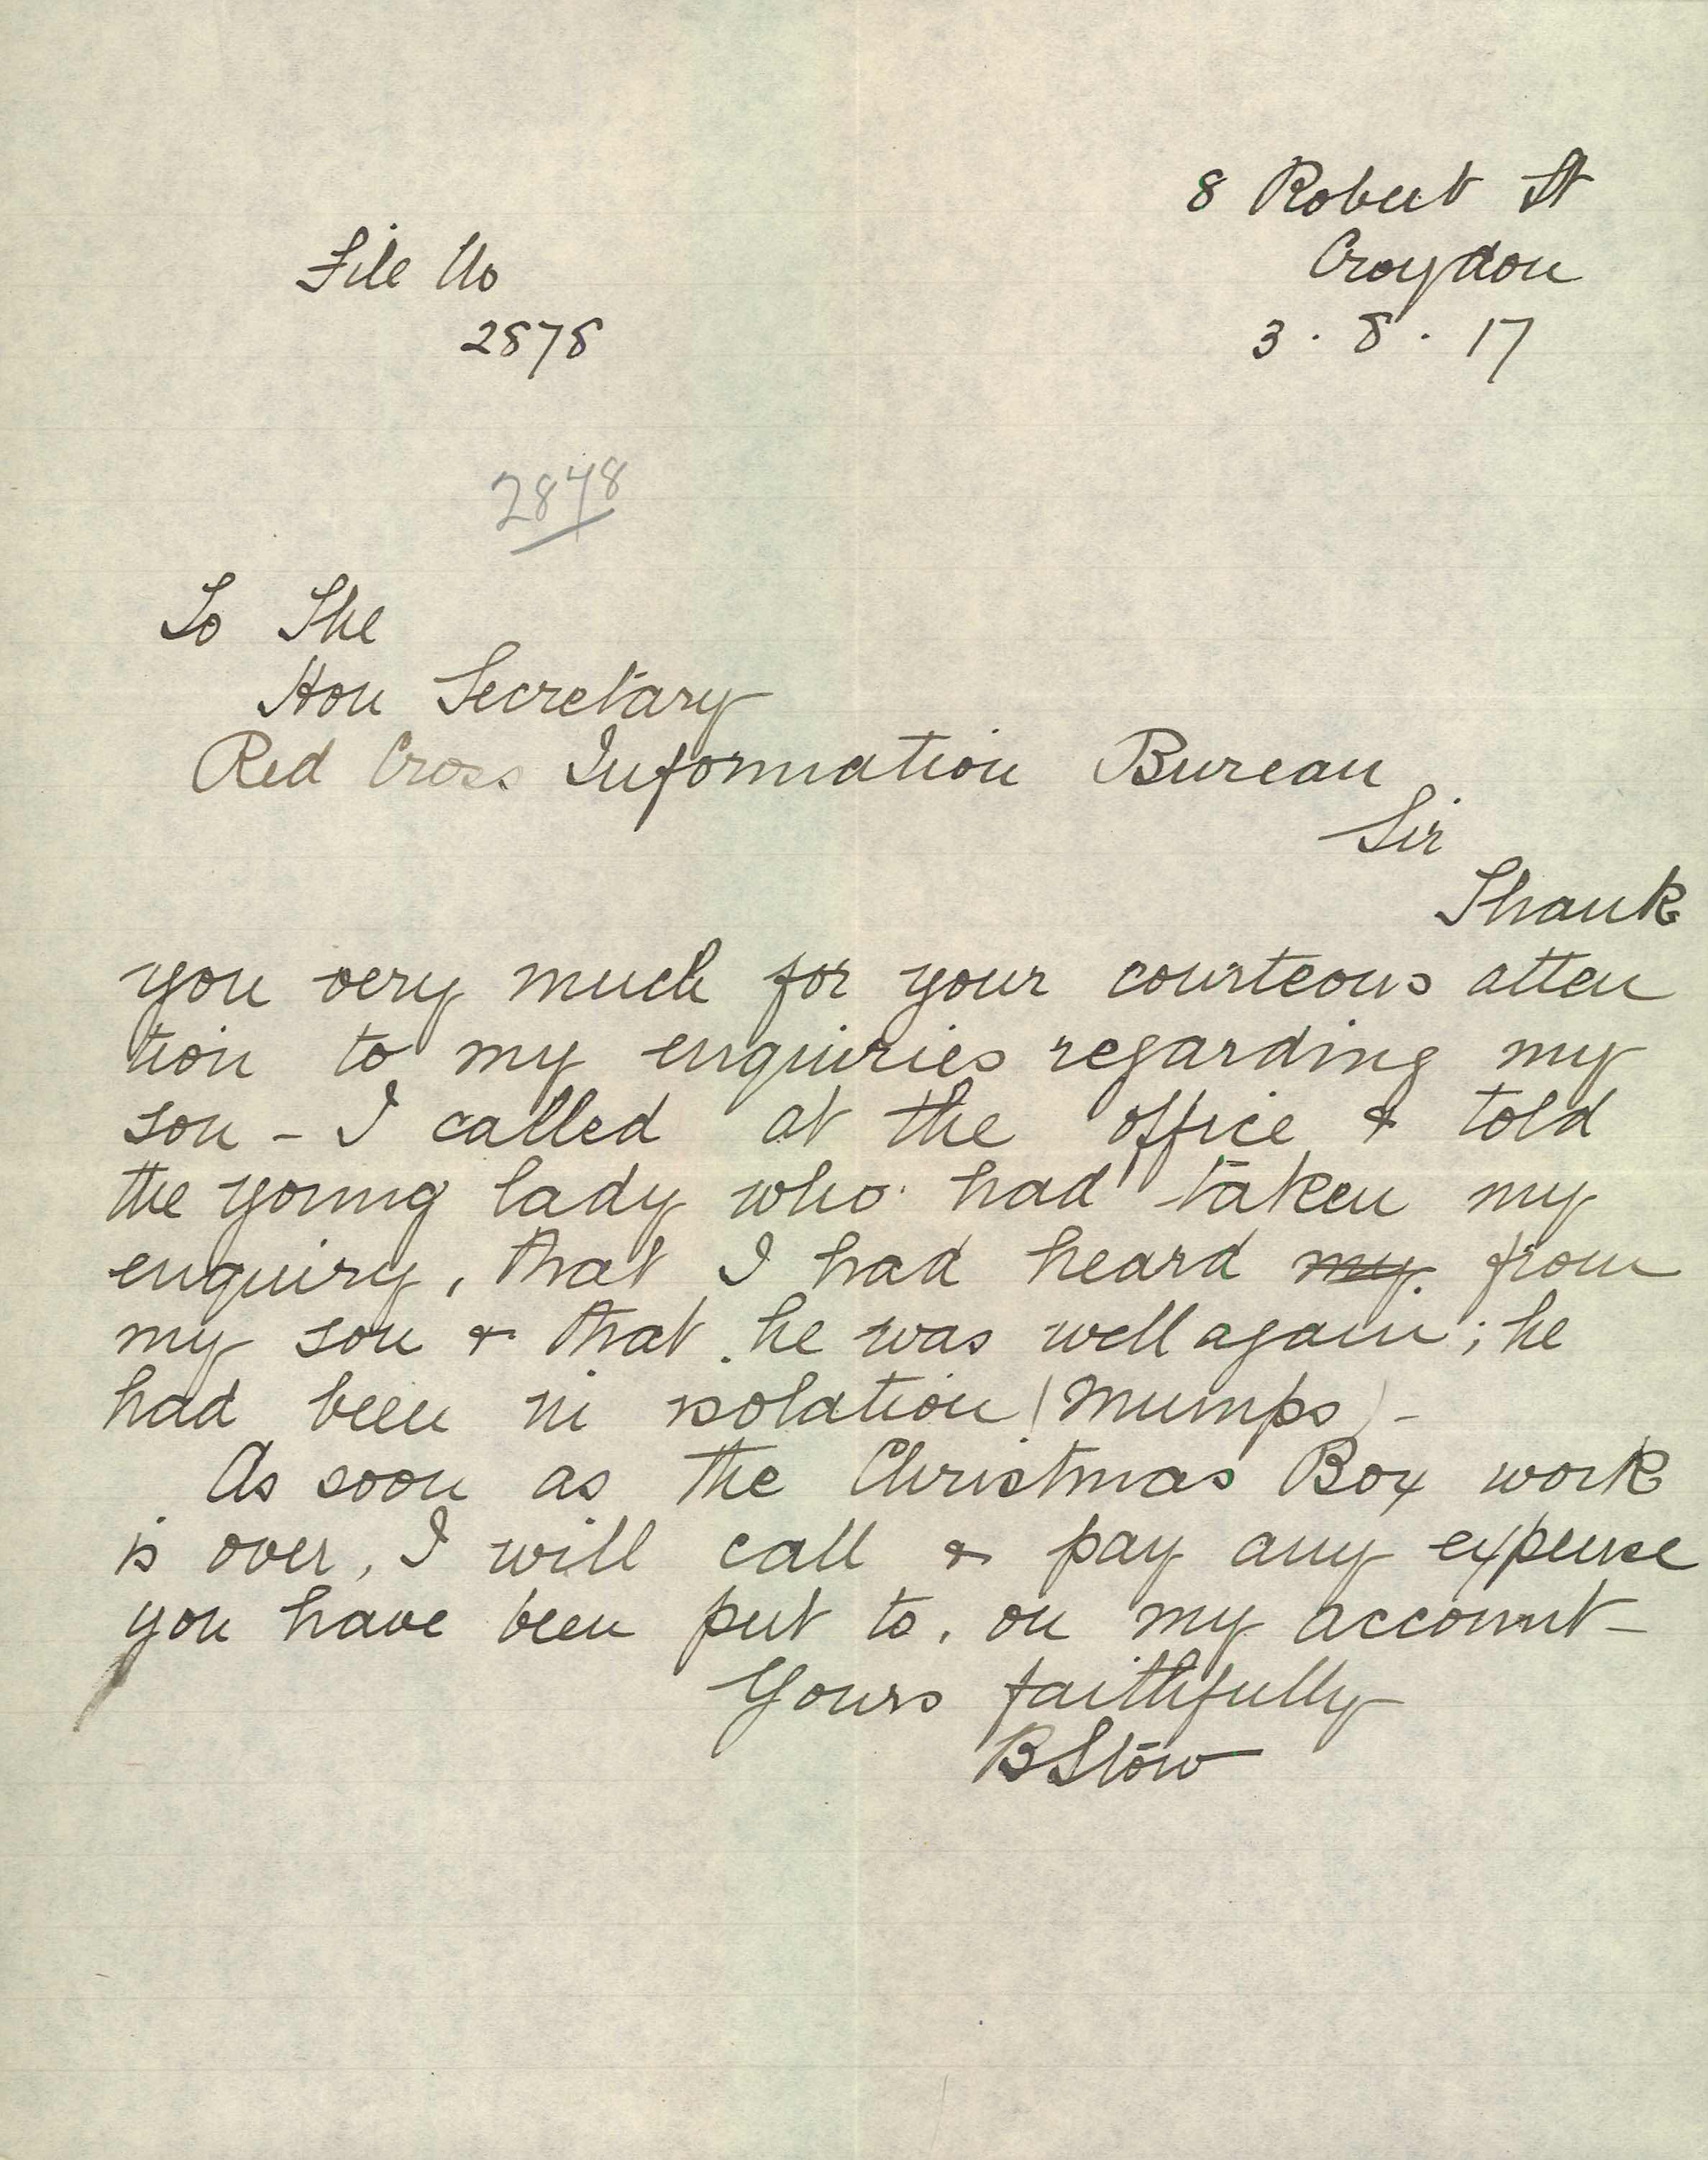 8 Robert St
Croydon
3 . 8 . 17
File No
2878
2848
To The
Hon Secretary
Red Cross Information Bureau
Sir
Thank
you very much for your courteous atten
tion to my enquiries regarding my
son - I called at the office & told
the young lady who had taken my
enquiry, that I had heard my from
my son & that he was well again; he
had been in isolation (Mumps) -
As soon as the Christmas Box work
is over, I will call & pay any expense
you have been put to, on my account -
Yours faithfully
B Stow